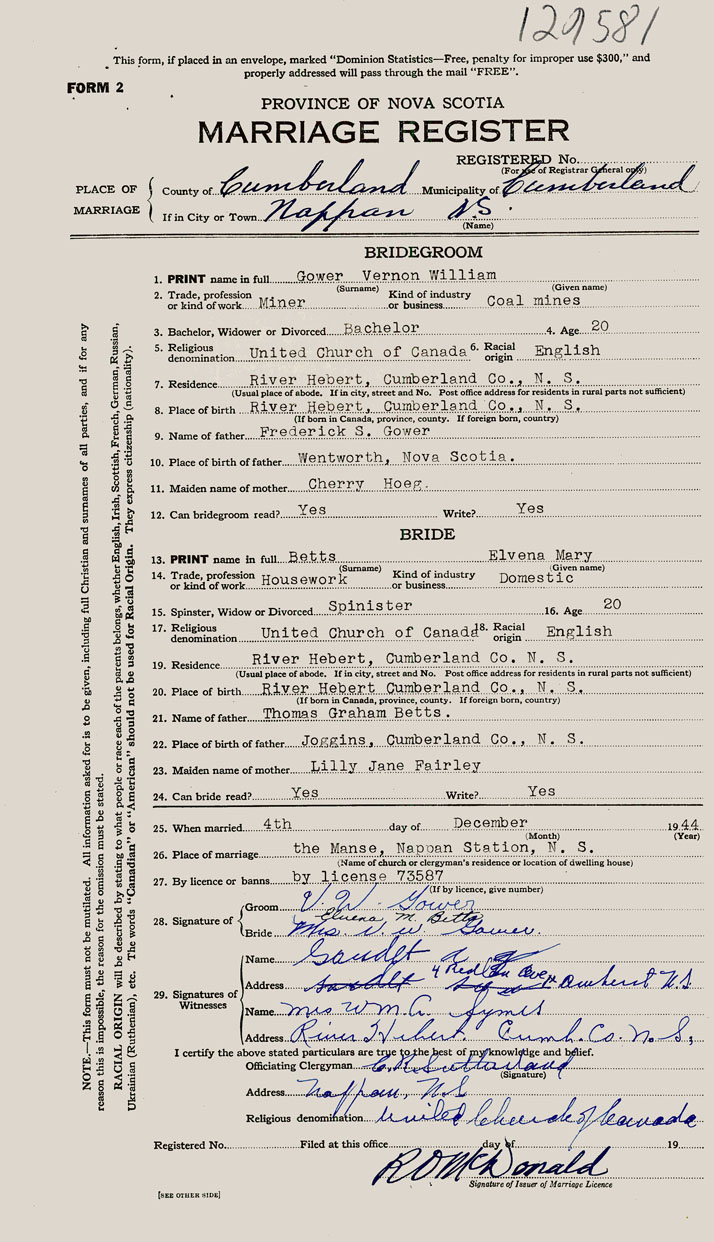 129581
This form, if placed in an envelope, marked "Dominion Statistics—Free, penalty for improper use $300," and
properly addressed will pass through the mail "FREE".
FORM 2
PROVINCE OF NOVA SCOTIA
MARRIAGE REGISTER
REGISTERED No.
(For use of Registrar General only)
PLACE OF MARRIAGE
County of Cumberland Municipality of Cumberland
If in City or Town Nappan N.S.
(Name)
BRIDEGROOM
1. PRINT name in full Gower Vernon William
(Surname) (Given name)
2. Trade, profession or kind of work Miner Kind of industry or business Coal mines
3. Bachelor, Widower or Divorced Bachelor 4. Age 20
5. Religious denomination United Church of Canada 6. Racial origin English
7. Residence River Hebert, Cumberland Co., N. S.
(Usual place of abode. If in city, street and No. Post office address for residents in rural parts not sufficient)
8. Place of birth River Hebert, Cumberland Co., N. S.
(If born in Canada, province, county. If foreign born, country)
9. Name of father Frederick S. Gower
10. Place of birth of father Wentworth, Nova Scotia.
11. Maiden name of mother Cherry Hoeg.
12. Can bridegroom read? Yes Write? Yes
BRIDE
13. PRINT name in full Betts Elvena Mary
(Surname) (Given name)
14. Trade, profession or kind of work Housework Kind of industry or business Domestic
15. Spinster, Widow or Divorced Spinister 16. Age 20
17. Religious denomination United Church of Canada 18. Racial origin English
19. Residence River Hebert, Cumberland Co. N. S.
(Usual place of abode. If in city, street and No. Post office address for residents in rural parts not sufficient)
20. Place of birth River Hebert Cumberland Co., N. S.
(If born in Canada, province, county. If foreign born, country)
21. Name of father Thomas Graham Betts.
22. Place of birth of father Joggins, Cumberland Co., N. S.
23. Maiden name of mother Lilly Jane Fairley
24. Can bride read? Yes Write? Yes
25. When married 4th day of December 1944
(Month) (Year)
26. Place of marriage the Manse, Nappan Station, N. S.
(Name of church or clergyman's residence or location of dwelling house)
27. By licence or banns by license 73587
(If by licence, give number)
28. Signature of
Groom V. W. Gower
Elvena M. Betts
Bride Mrs. V. W. Gower.
29. Signatures of Witnesses
Name
Address Amherst N.S
Name Mrs Wm. A. Symes
Address River Hebert. Cumb. Co. N.S,
I certify the above stated particulars are true to the best of my knowledge and belief.
Officiating Clergyman C.R. Sutherland
(Signature)
Address Nappan, N.S
Religious denomination United Church of Canada
Registered No. Filed at this office day of 19
R D McDonald
Signature of Issuer of Marriage Licence
[SEE OTHER SIDE]
NOTE.—This form must not be mutilated. All information asked for is to be given, including full Christian and surnames of all parties, and if for any
reason this is impossible, the reason for the omission must be stated.
RACIAL ORIGIN will be described by stating to what people or race each of the parents belongs, whether English, Irish, Scottish, French, German, Russian,
Ukrainian (Ruthenian), etc. The words "Canadian" or "American" should not be used for Racial Origin. They express citizenship (nationality).